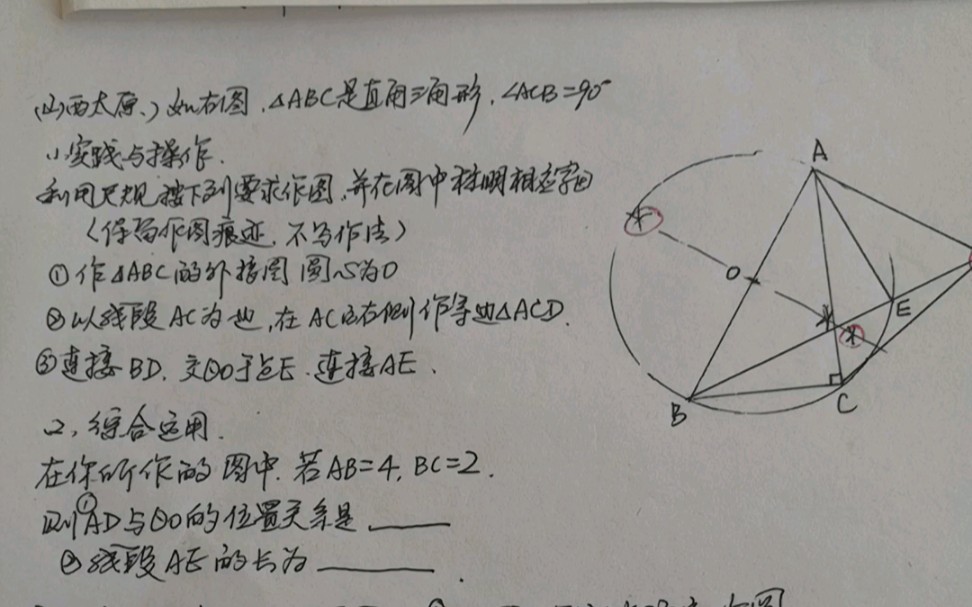 (山西太原、) 如右图.△ABC是直角三角形.∠ACB=90°
(1)实践与操作.
利用尺规按下列要求作图,并在图中标明相应字母
(保留作图痕迹,不写作法)
①作△ABC的外接圆 圆心为O
②以线段AC为边,在AC的右侧作等边△ACD.
③连接BD.交⊙O于点E.连接AE.
(2)综合运用.
在你所作的图中.若AB=4,BC=2.
则①AD与⊙O的位置关系是____
②线段AE的长为____.
A
O
E
B
C